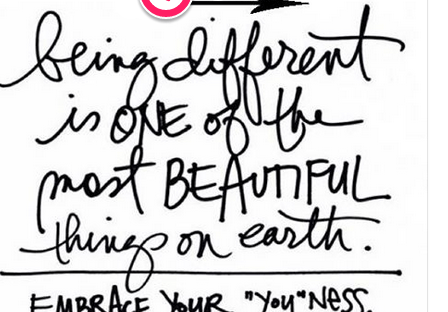 being different
is ONE of the
most BEAUTIFUL
things on earth.
EMBRACE YOUR "YOU"NESS.